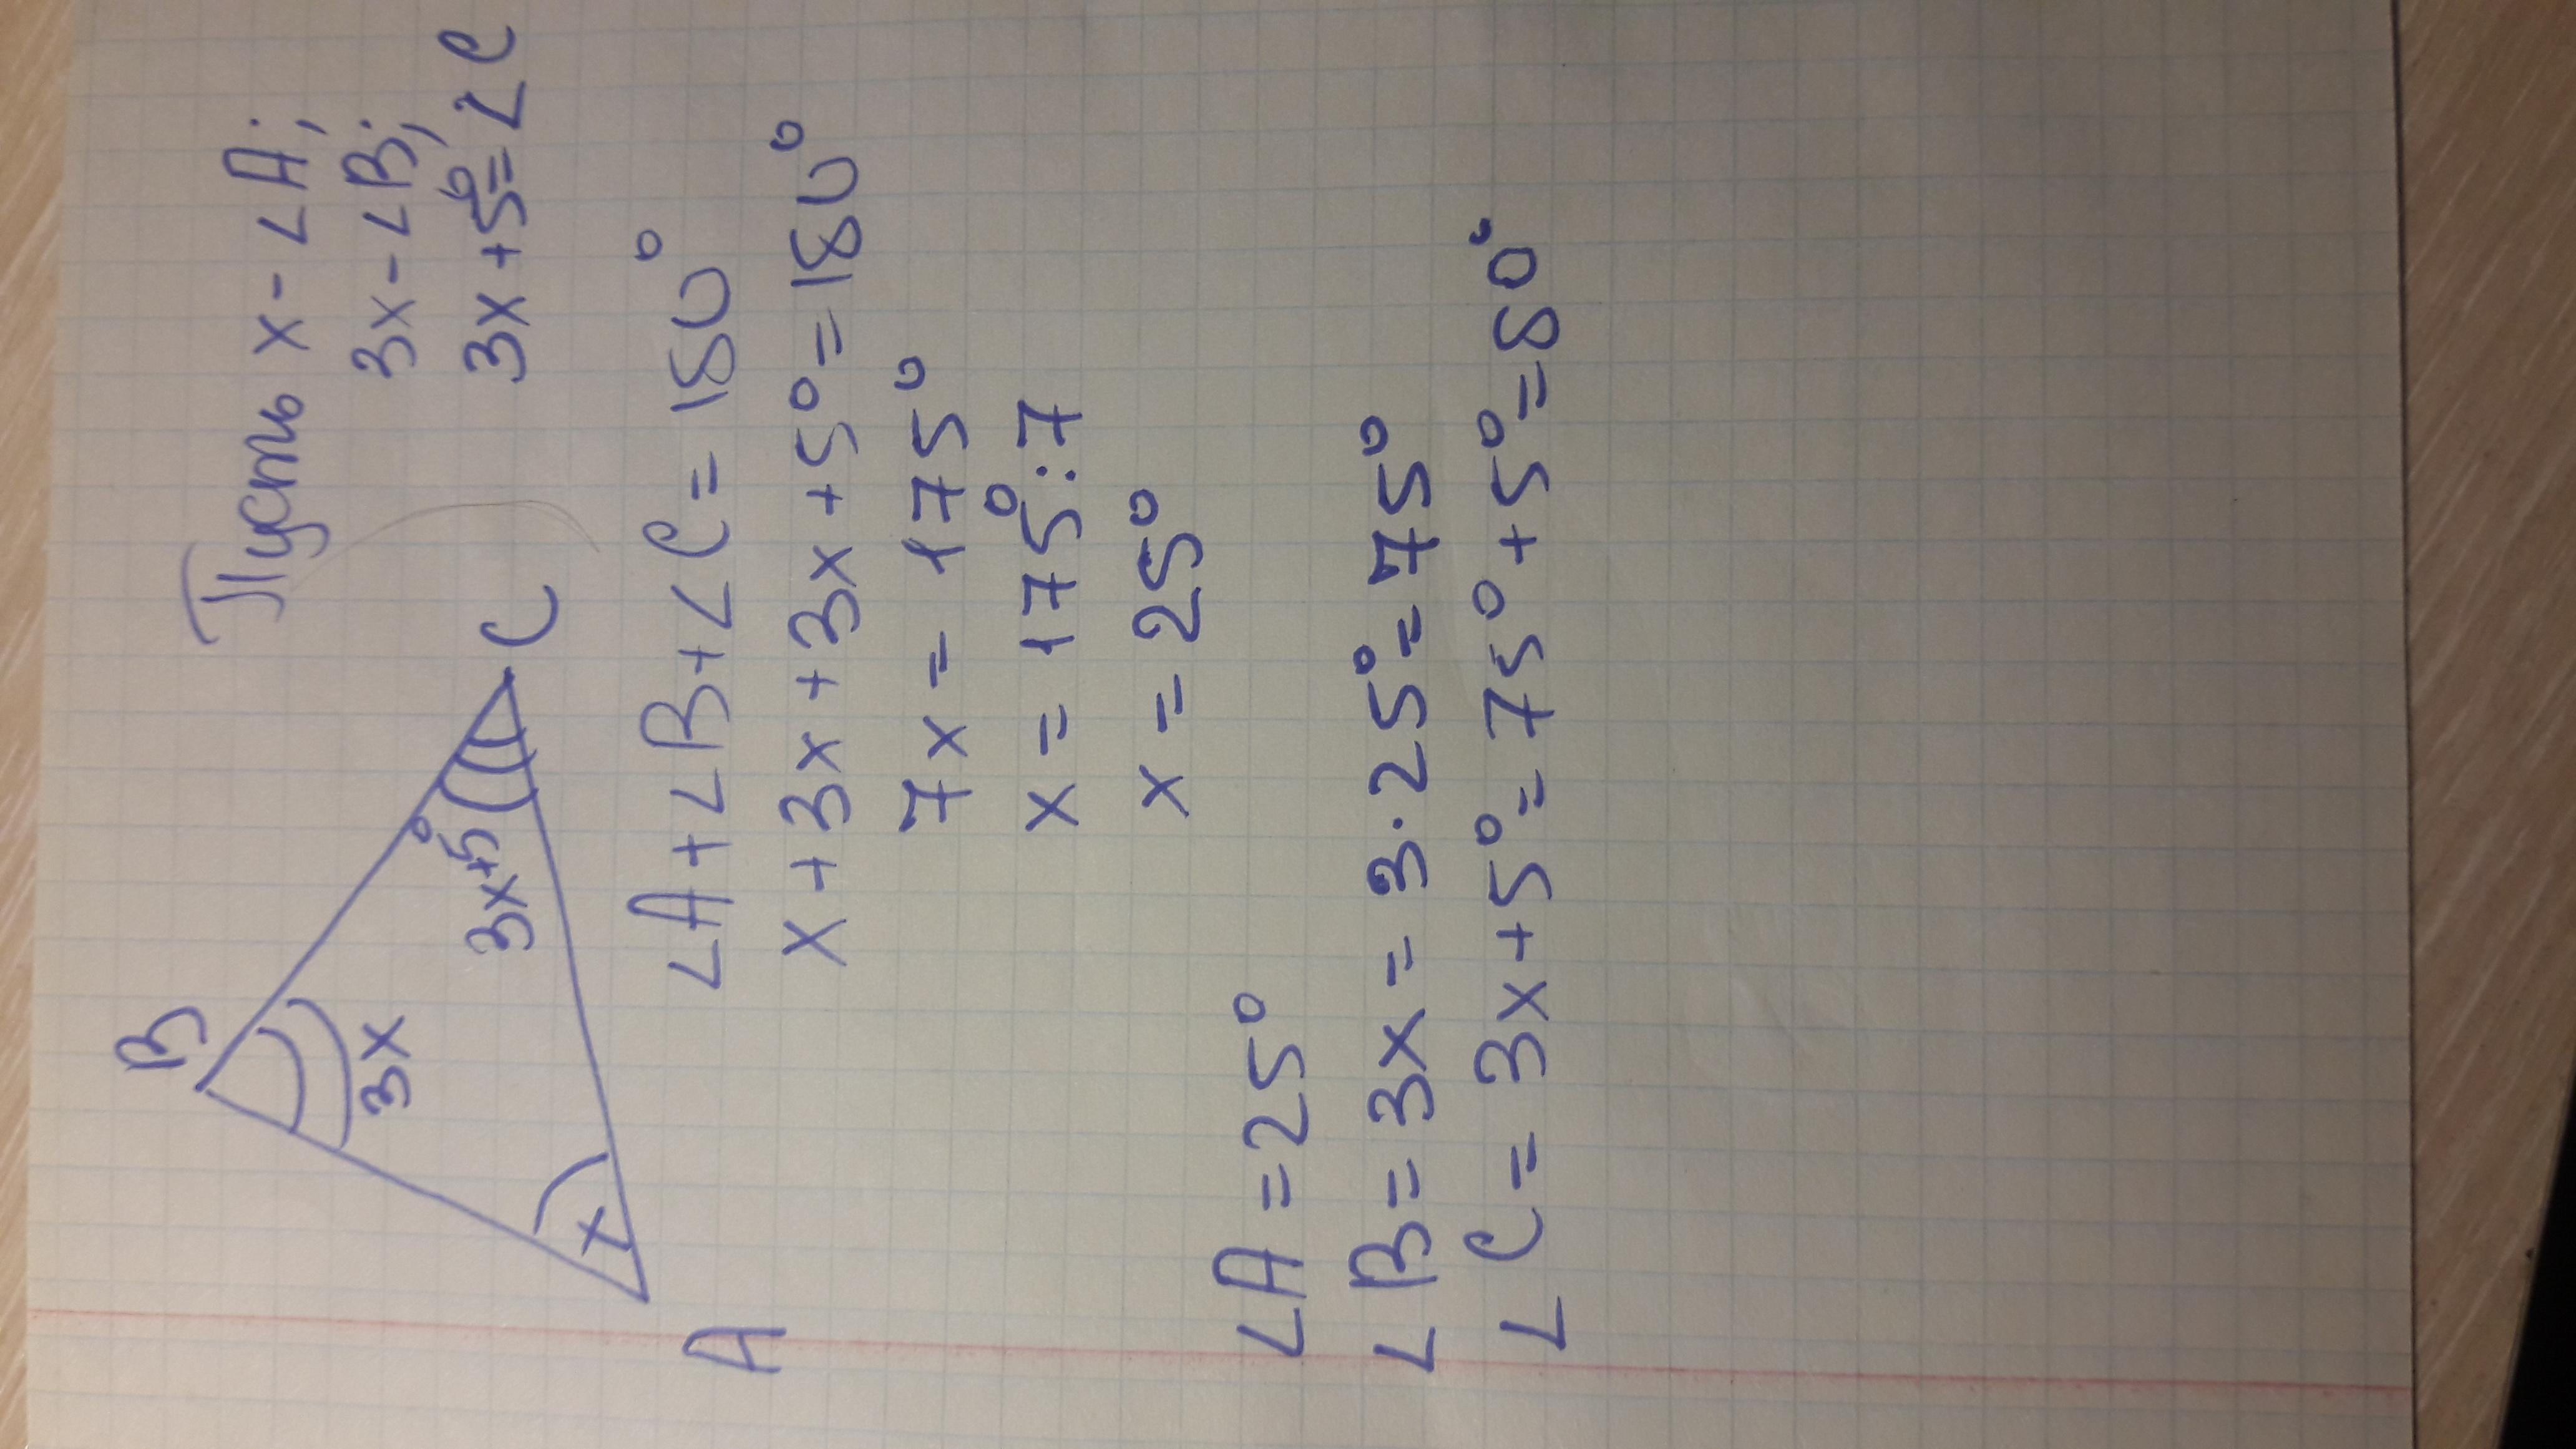 B
3x
3x+5°
x
A
C
Пусть x - ∠A;
3x - ∠B;
3x + 5° = ∠C
∠A + ∠B + ∠C = 180°
x + 3x + 3x + 5° = 180°
7x = 175°
x = 175° : 7
x = 25°
∠A = 25°
∠B = 3x = 3 · 25° = 75°
∠C = 3x + 5° = 75° + 5° = 80°